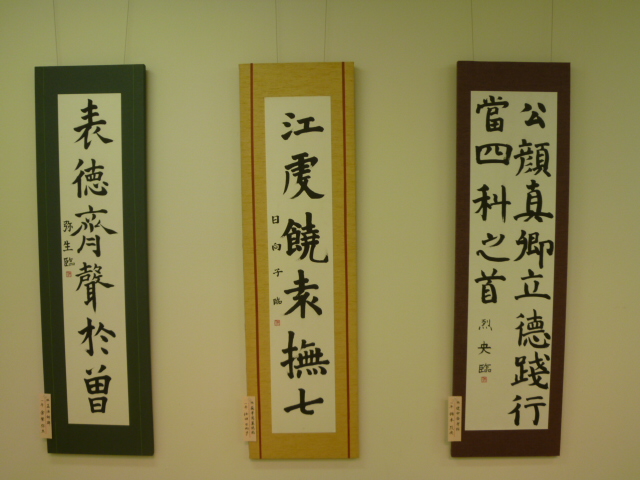 公顔真卿立德踐行
當四科之首
烈央臨
江虔饒袁撫七
日向子臨
表徳齊聲於曾
弥生臨